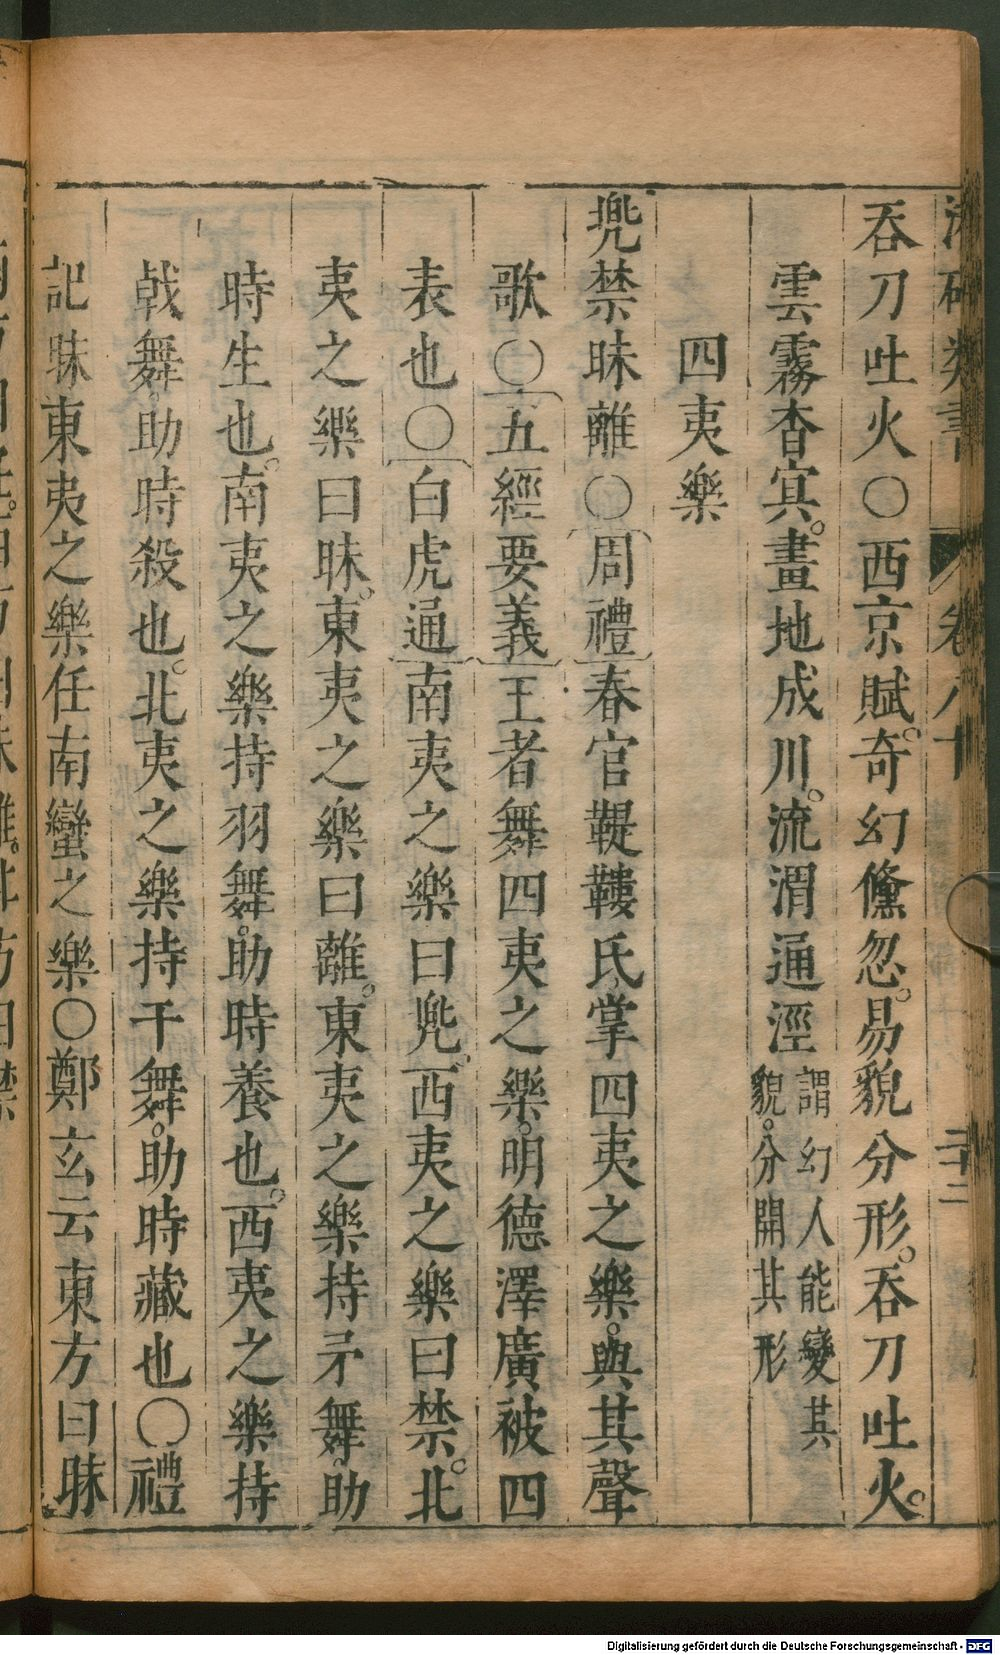 類書 卷八十 二十二
吞刀吐火〇西京賦。奇幻儵忽。易貌分形。吞刀吐火。
雲霧杳冥。畫地成川。流渭通涇
謂幻人能變其
貌。分開其形
四夷樂
兠禁昧離〇周禮春官鞮鞻氏掌四夷之樂。與其聲
歌〇五經要義王者舞四夷之樂。明德澤廣被四
表也〇白虎通南夷之樂曰兠。西夷之樂曰禁。北
夷之樂曰昧。東夷之樂曰離。東夷之樂持矛舞。助
時生也。南夷之樂持羽舞。助時養也。西夷之樂持
戟舞。助時殺也。北夷之樂持干舞。助時藏也〇禮
記昧東夷之樂任南蠻之樂〇鄭玄云東方曰昧
Digitalisierung gefördert durch die Deutsche Forschungsgemeinschaft - DFG